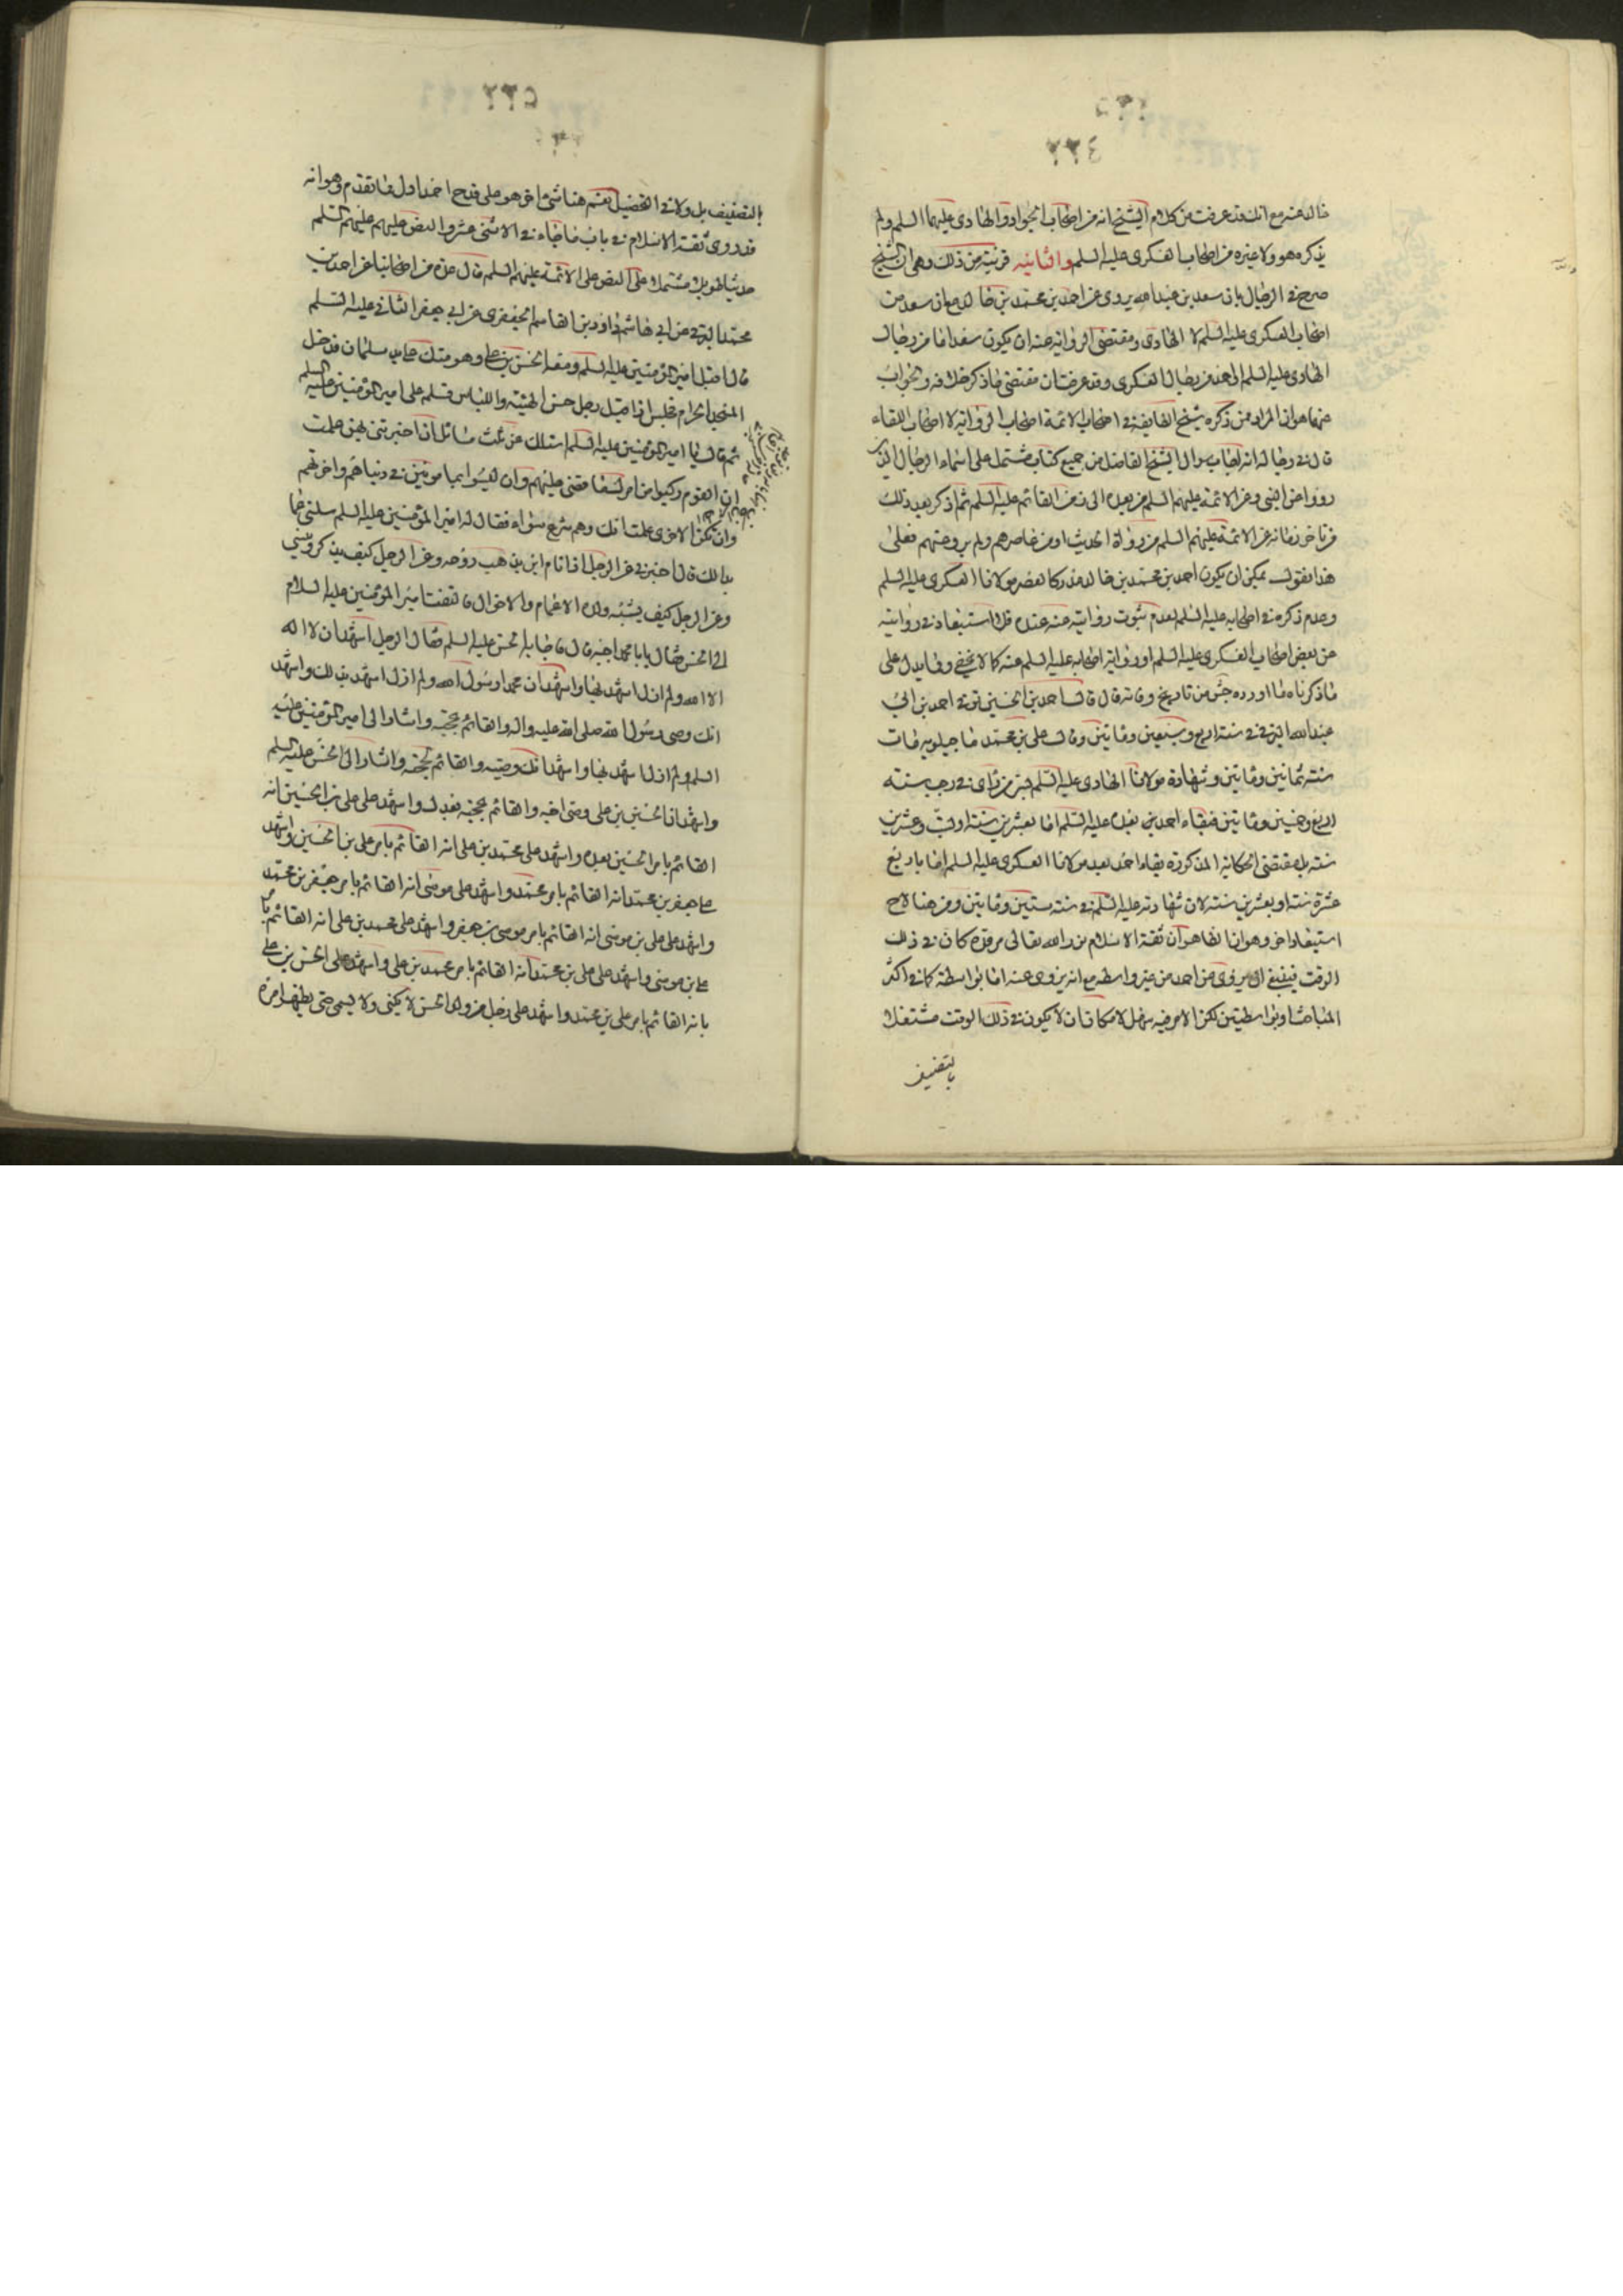 ٢٣٤
خالد عنه مع انك قد عرفت من كلام الشيخ انه من اصحاب الجواد والهادى عليهما السلم ولم
يذكره هو ولا غيره من اصحاب العسكرى عليه السلم والثانيه قريبة من ذلك وهى ان الشيخ
صرح فى الرجال بان سعد بن عبد الله يروى عن احمد بن محمد بن خالد مع ان سعد من
اصحاب العسكرى عليه السلم لا الهادى ومقتضى الرواية عنه ان يكون سعد اما من رجال
الهادى عليه السلم او احمد من رجال العسكرى وقد عرفت ان مقتضى ما ذكر خلافه والجواب
عنهما هو ان المراد ممن ذكره شيخ الطايفة فى اصحاب الائمة اصحاب الرواية لا اصحاب اللقاء
قال فى رجاله انه اجاب سوال الشيخ الفاضل من جميع كتاب مشتمل على اسماء الرجال الذين
رووا عن النبى وعن الائمة عليهم السلم من بعده الى زمن القائم عليه السلم ثم اذكر بعد ذلك
من تاخر زمانه عن الائمة عليهم السلم من رواة الحديث او من عاصرهم ولم يرو عنهم فعلى
هذا نقول يمكن ان يكون احمد بن محمد بن خالد مدركا لعصر مولانا العسكرى عليه السلم
وعدم ذكره فى اصحابه عليه السلم لعدم ثبوت روايته عنه عنده فلا استبعاد فى روايته
عن بعض اصحاب العسكرى عليه السلم او رواية اصحابه عليه السلم عنه كما لا يخفى ومما يدل على
ما ذكرناه ما اورده جش من تاريخ وفاته قال قال احمد بن الحسين توفى احمد بن ابى
عبد الله البرقى فى سنة اربع وسبعين ومائتين وقال على بن محمد ماجيلويه مات
سنة ثمانين ومائتين وشهادة مولانا الهادى عليه السلم بسر من راى فى رجب سنة
اربع وخمسين ومائتين فبقاء احمد بن بعده عليه السلم اما بعشرين سنة او ست وعشرين
سنة بل مقتضى الحكاية المذكورة بقاء احمد بعد مولانا العسكرى عليه السلم اما باربع
عشرة سنة او بعشرين سنة لان شهادته عليه السلم فى سنة ستين ومائتين ومن هنا لاح
استبعاد اخر وهو ان الظاهر ان ثقة الاسلام نور الله تعالى مرقده كان فى ذلك
الوقت فينبغى ان يروى عن احمد من غير واسطه مع انه يروى عنه اما بواسطة كما فى اكثر
المباحث او بواسطتين لكن الامر فيه سهل لامكان ان لا يكون فى ذلك الوقت مشتغلا
بالتصنيف
٢٣٥
بالتصنيف بل ولا فى التحصيل نعم هنا شئ اخر هو على قدح احمد اول مما تقدم وهو انه
قد روى ثقة الاسلام فى باب ما جاء فى الاثنى عشر والنص عليهم عليهم السلم
حديثا طويلا مشتملا على النص على الائمة عليهم السلم قال عدة من اصحابنا عن احمد بن
محمد البرقى عن ابى هاشم داود بن القاسم الجعفرى عن ابى جعفر الثانى عليه السلم
قال اقبل امير المؤمنين عليه السلم ومعه الحسن بن على وهو متك على يد سلمان فدخل
المسجد الحرام فجلس اذا اقبل رجل حسن الهيئة واللباس فسلم على امير المؤمنين عليه السلم
ثم قال يا امير المؤمنين عليه السلم اسئلك عن ثلث مسائل اذا اخبرتنى بهن علمت
ان القوم ركبوا من امرك ما قضى عليهم وان ليسوا بمامونين فى دنياهم واخرتهم
وان تكن الاخرى علمت انك وهم شرع سواء فقال له امير المؤمنين عليه السلم سلنى عما
بدا لك قال اخبرنى عن الرجل اذا نام اين يذهب روحه وعن الرجل كيف يذكر وينسى
وعن الرجل كيف يشبه ولده الاعمام والاخوال فالتفت امير المؤمنين عليه السلام
الى الحسن فقال يا با محمد اجبه قال فاجابه الحسن عليه السلم فقال الرجل اشهد ان لا اله
الا الله ولم ازل اشهد بها واشهد ان محمدا رسول الله ولم ازل اشهد بذلك واشهد
انك وصى رسول الله صلى الله عليه واله والقائم بحجته واشار الى امير المؤمنين عليه
السلم ولم ازل اشهد بها واشهد انك وصيه والقائم بحجته واشار الى الحسن عليه السلم
واشهد ان الحسين بن على وصى اخيه والقائم بحجته بعدك واشهد على على بن الحسين انه
القائم بامر الحسين بعده واشهد على محمد بن على انه القائم بامر على بن الحسين واشهد
على جعفر بن محمد انه القائم بامر محمد واشهد على موسى انه القائم بامر جعفر بن محمد
واشهد على على بن موسى انه القائم بامر موسى بن جعفر واشهد على محمد بن على انه القائم بامر
على بن موسى واشهد على على بن محمد انه القائم بامر محمد بن على واشهد على الحسن بن على
بانه القائم بامر على بن محمد واشهد على رجل من ولد الحسن لا يكنى ولا يسمى حتى يظهر امره